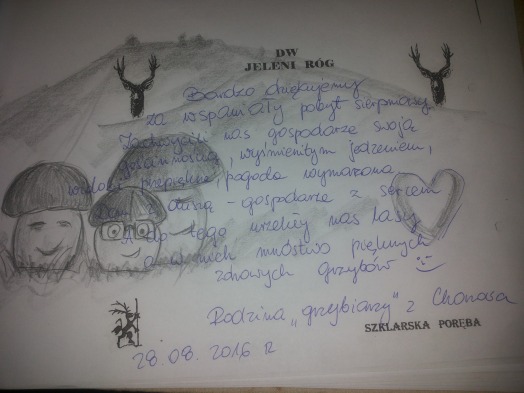 DW
JELENI RÓG
Bardzo dziękujemy
za wspaniały pobyt sierpniowy
Zachwycili nas gospodarze swoją
gościnnością, wyśmienitym jedzeniem,
widoki przepiękne, pogoda wymarzona
duszą - gospodarze z sercem
A do tego urzekły nas lasy
a w nich mnóstwo pięknych
zdrowych grzybów
Rodzina „grzybiarzy" z
SZKLARSKA PORĘBA
28.08.2016 r